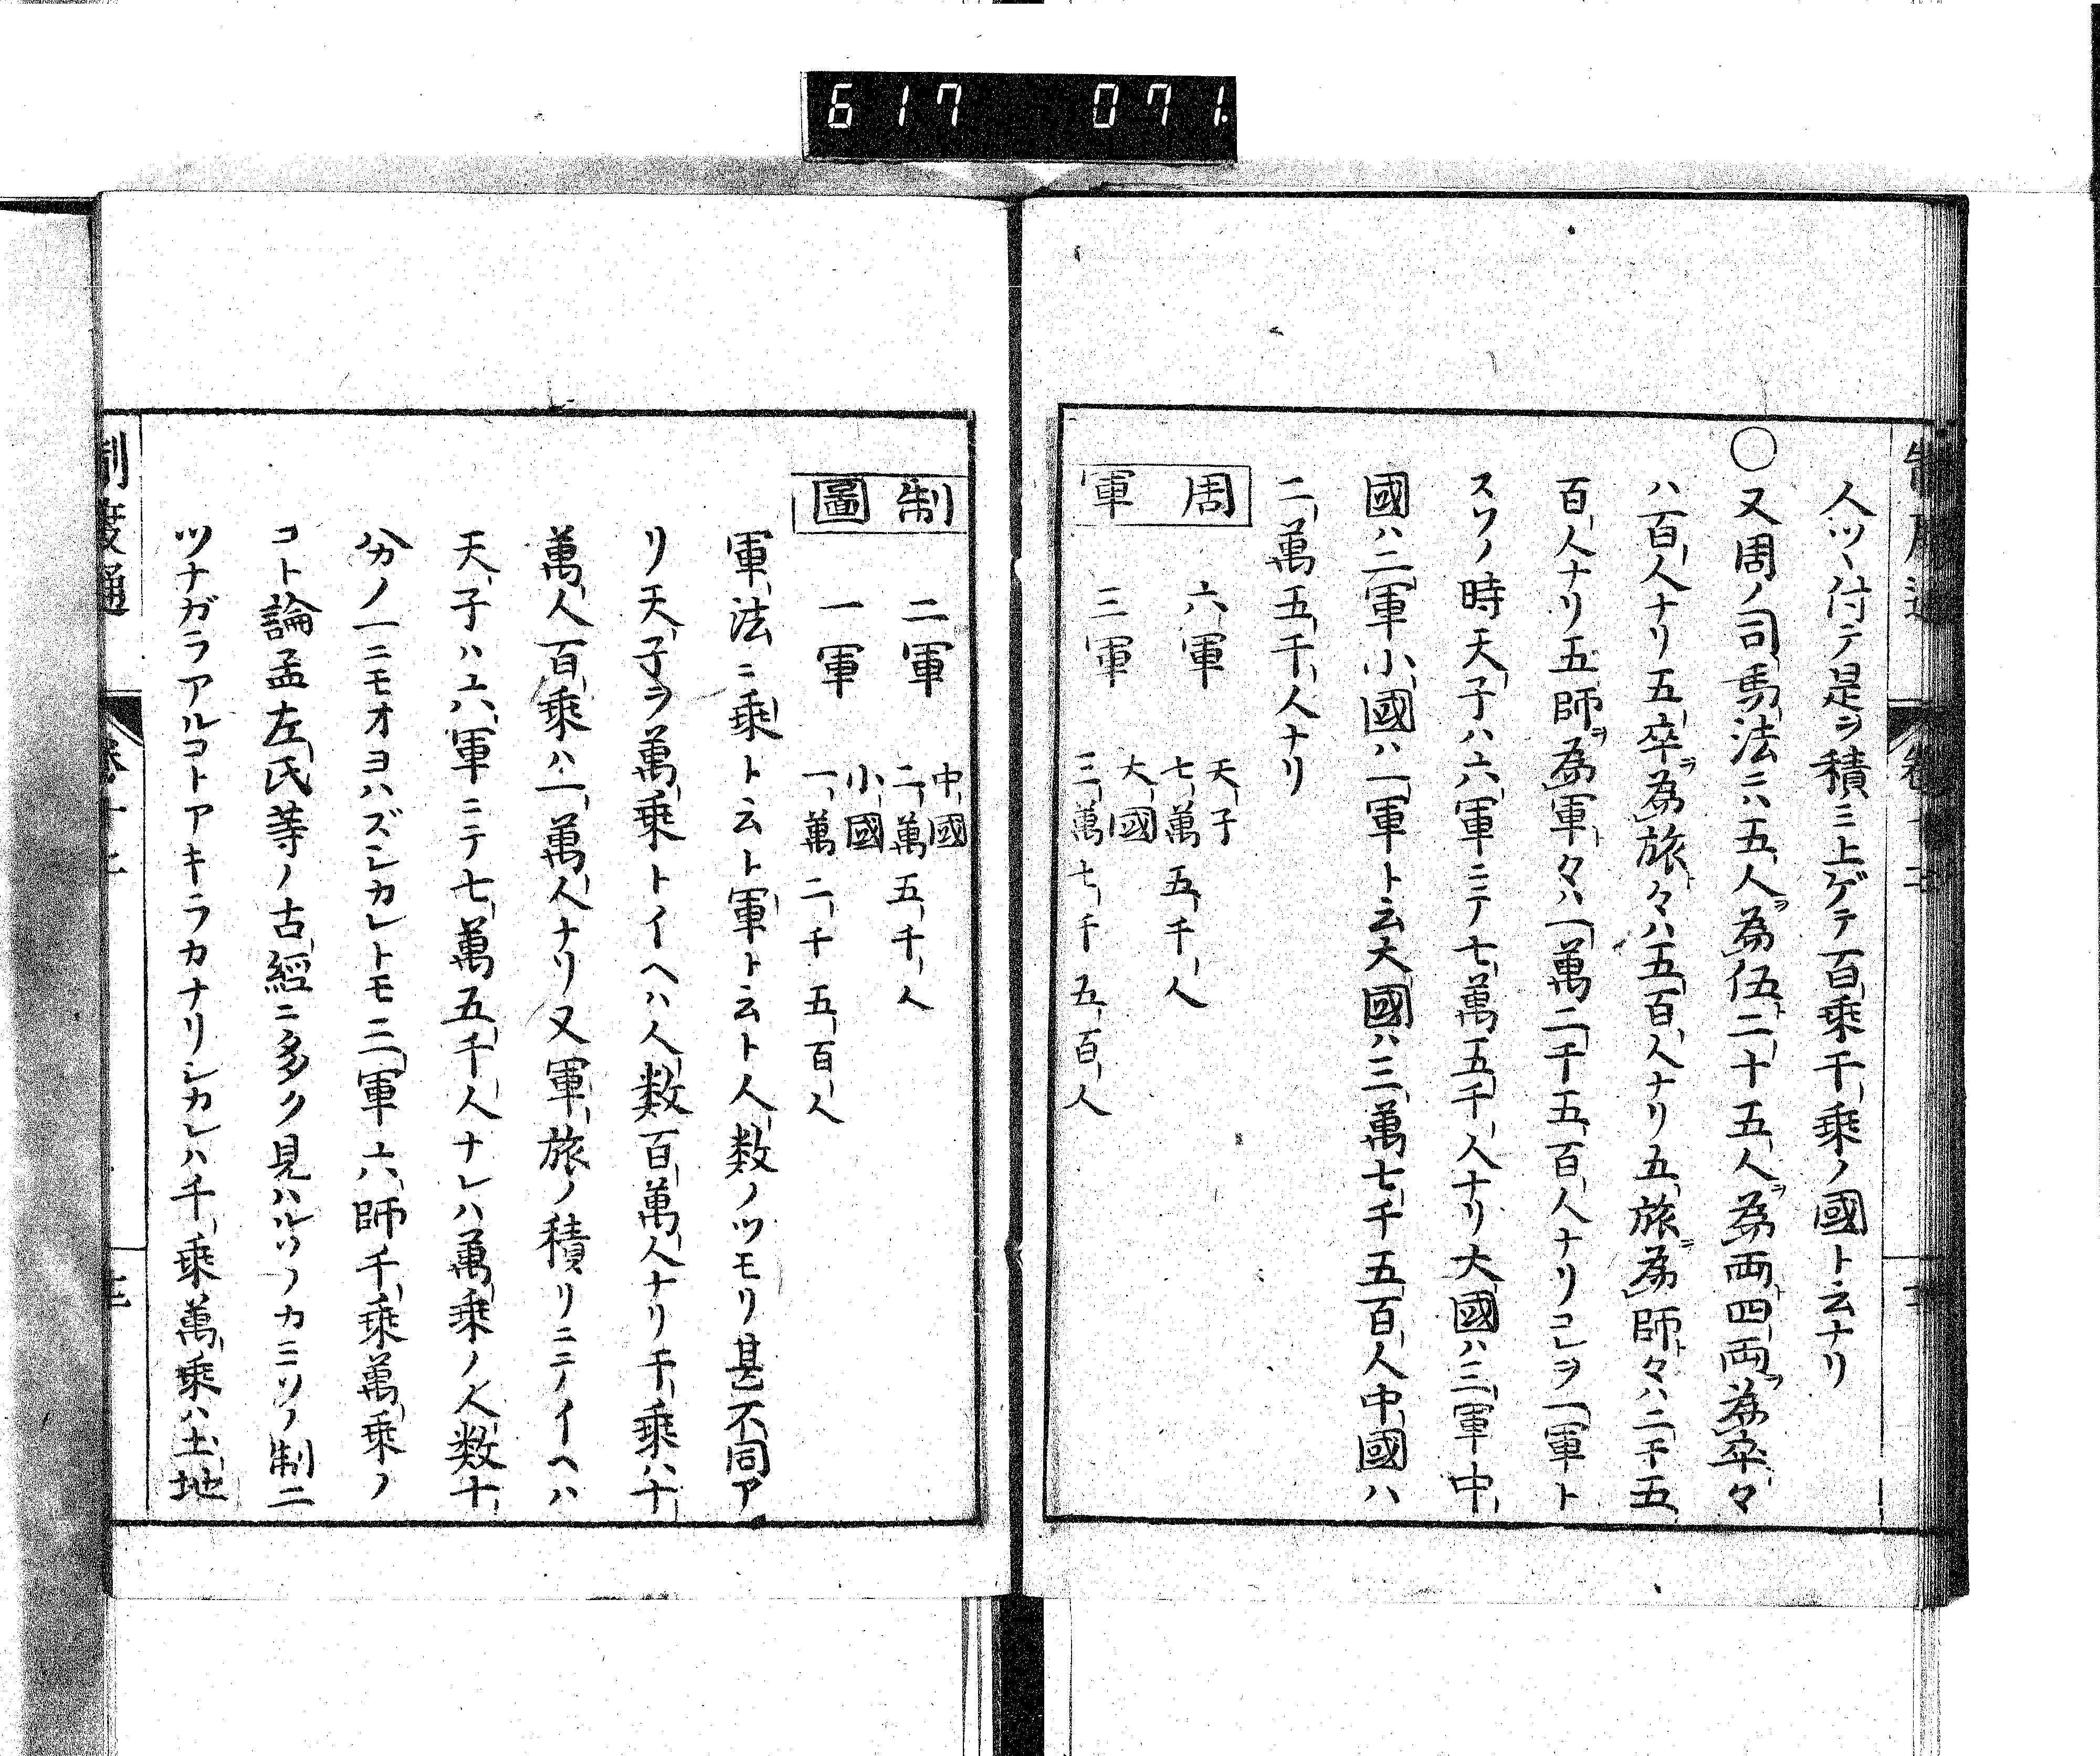 617 071.
人ツヽ付テ是ヲ積ミ上ゲテ百乘千乘ノ國ト云ナリ
○又周ノ司馬法ニハ五人ヲ為伍ト二十五人ヲ為兩ト四兩ヲ為卒ト々
ハ百人ナリ五卒ヲ為旅ト々ハ五百人ナリ五旅ヲ為師ト々ハ二千五
百人ナリ五師ヲ為軍ト々ハ一萬二千五百人ナリコレヲ一軍ト
スソノ時天子ハ六軍ニテ七萬五千人ナリ大國ハ三軍中
國ハ二軍小國ハ一軍ト云大國ハ三萬七千五百人中國ハ
二萬五千人ナリ
周軍
六軍 天子 七萬五千人
三軍 大國 三萬七千五百人
制圖
二軍 中國 二萬五千人
一軍 小國 一萬二千五百人
軍法ニ乘ト云ト軍ト云ト人数ノツモリ甚不同ア
リ天子ヲ萬乘トイヘハ人数百萬人ナリ千乘ハ十
萬人百乘ハ一萬人ナリ又軍旅ノ積リニテイヘハ
天子ハ六軍ニテ七萬五千人ナレハ萬乘ノ人数十
分ノ一ニモオヨハズシカレトモ三軍六師千乘萬乘ノ
コト論孟左氏等ノ古經ニ多ク見ハルソノカミソノ制二
ツナガラアルコトアキラカナリシカレハ千乘萬乘ハ土地
制度通